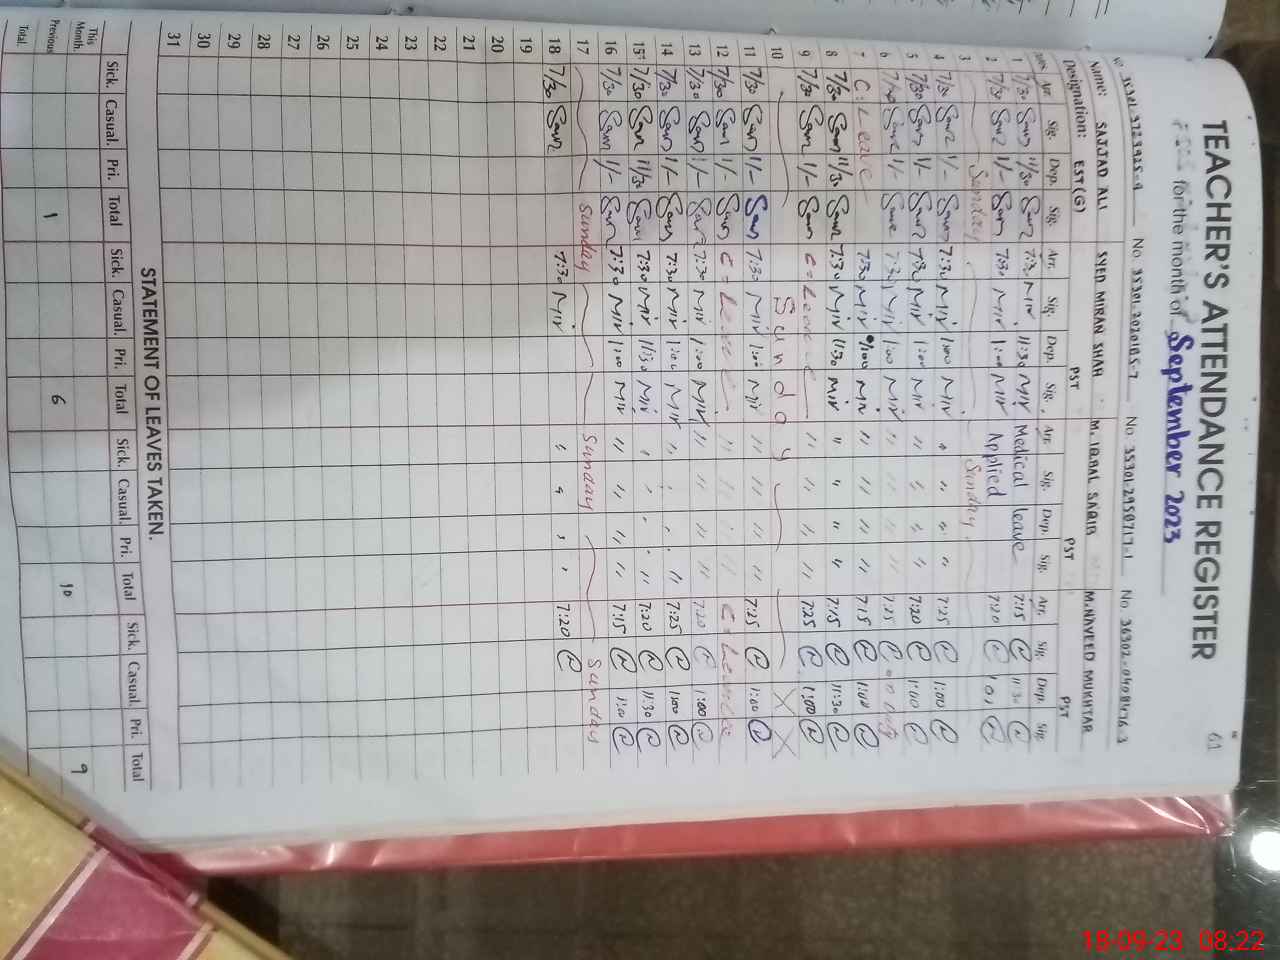 TEACHER'S ATTENDANCE REGISTER 61
for the month of September 2023
No. 35301-2020185-7 No. 35301-2950717-1 No. 36302-0408476-3
Name: SAJJAD ALI SYED MIRAN SHAH M. IQBAL SAQIB M.NAVEED MUKHTAR
Designation: EST(G) PST PST PST
Arr. Sig. Dep. Sig. Arr. Sig. Dep. Sig. Arr. Sig. Dep. Sig. Arr. Sig. Dep. Sig.
1 7/30 11/30 7:30 Mir 11:30 Mir Medical leave 7:15 11:30
2 7/30 1/- 7:30 Mir 1:00 Mir Applied 7:20
3 Sunday Sunday
4 7/30 1/- 7:30 Mir 1:00 Mir " " " " 7:25 1:00
5 7/30 1/- 7:30 Mir 1:00 Mir " " " " 7:20 1:00
6 7/30 1/- 7:30 Mir 1:00 Mir " " " " 7:25
7 C. Leave 7:30 Mir 1:00 Mir " " " " 7:15 1:00
8 7/30 11/30 7:30 Mir 11:30 Mir " " " " 7:15 11:30
9 7/30 1/- C = Leave " " " " 7:25 1:00
10 Sunday X X
11 7/30 1/- 7:30 Mir 1:00 Mir " " " " 7:25 1:00
12 7/30 1/- C = Leave " " " " C = Leave
13 7/30 1/- 7:30 Mir 1:00 Mir " " " " 7:20 1:00
14 7/30 1/- 7:30 Mir 1:00 Mir " " " " 7:25 1:00
15 7/30 11/30 7:30 Mir 11:30 Mir " " " " 7:20 11:30
16 7/30 1/- 7:30 Mir 1:00 Mir " " " " 7:15 1:00
17 Sunday Sunday Sunday
18 7/30 7:30 Mir " " " " 7:20
19
20
21
22
23
24
25
26
27
28
29
30
31
STATEMENT OF LEAVES TAKEN.
Sick. Casual. Pri. Total Sick. Casual. Pri. Total Sick. Casual. Pri. Total Sick. Casual. Pri. Total
This Month.
Previous 1 6 10 9
Total.
18-09-23 08:22